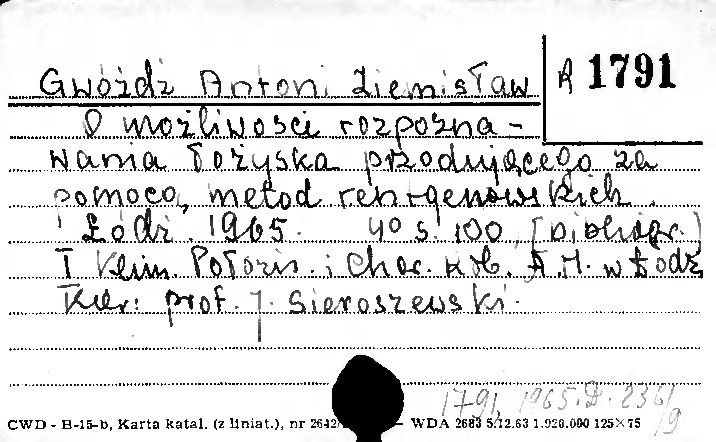 Gwóźdź Antoni Ziemisław
A 1791
O możliwości rozpozna-
wania łożyska przodującego za
pomocą metod rentgenowskich.
Łódź. 1965. 4° s. 100, [bibliogr.]
I Klin. Położn. i Chor. Kob. A.M. w Łodzi
Kier: prof. J. Sieroszewski.
1791, 1965.D. 236/9
CWD - B-15-b, Karta katal. (z liniat.), nr 2642/ — WDA 2683 5.12.63 1.920.000 125×75